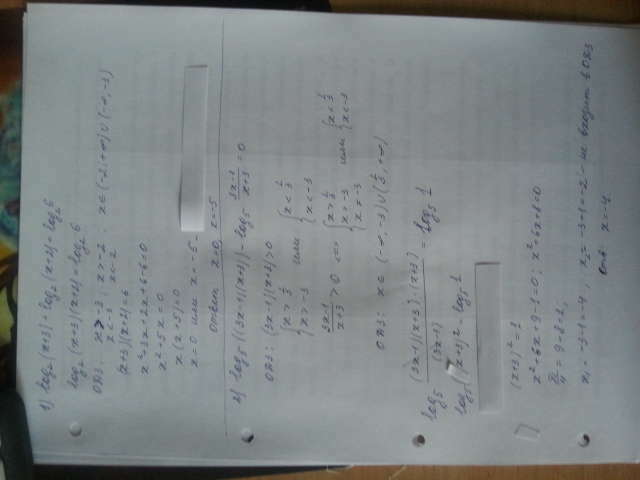 1) log₂(x+3) + log₂(x+2) = log₂6
log₂(x+3)(x+2) = log₂6
ОДЗ: x > -3 ; x > -2 ; x∈(-2;+∞)∪(-∞,-3)
x < -3 x < -2
(x+3)(x+2) = 6
x²+3x+2x+6-6=0
x²+5x=0
x(x+5)=0
x=0 или x=-5
Ответ: x=0, x=-5
2) log₅((3x-1)(x+3)) - log₅ (3x-1)/(x+3) = 0
ОДЗ: (3x-1)(x+3)>0
{x > 1/3 {x < 1/3
{x > -3 или {x < -3
(3x-1)/(x+3) > 0 <=> {x > 1/3 {x < 1/3
{x > -3 или {x < -3
{x ≠ -3
ОДЗ: x∈(-∞,-3)∪(1/3,+∞)
log₅ (3x-1)(x+3)·(x+3)/(3x-1) = log₅ 1
log₅(x+3)² = log₅ 1
(x+3)²=1
x²+6x+9-1=0; x²+6x+8=0
D/4 = 9-8=1;
x₁=-3-1=-4, x₂=-3+1=-2 - не входит в ОДЗ
Отв: x=-4